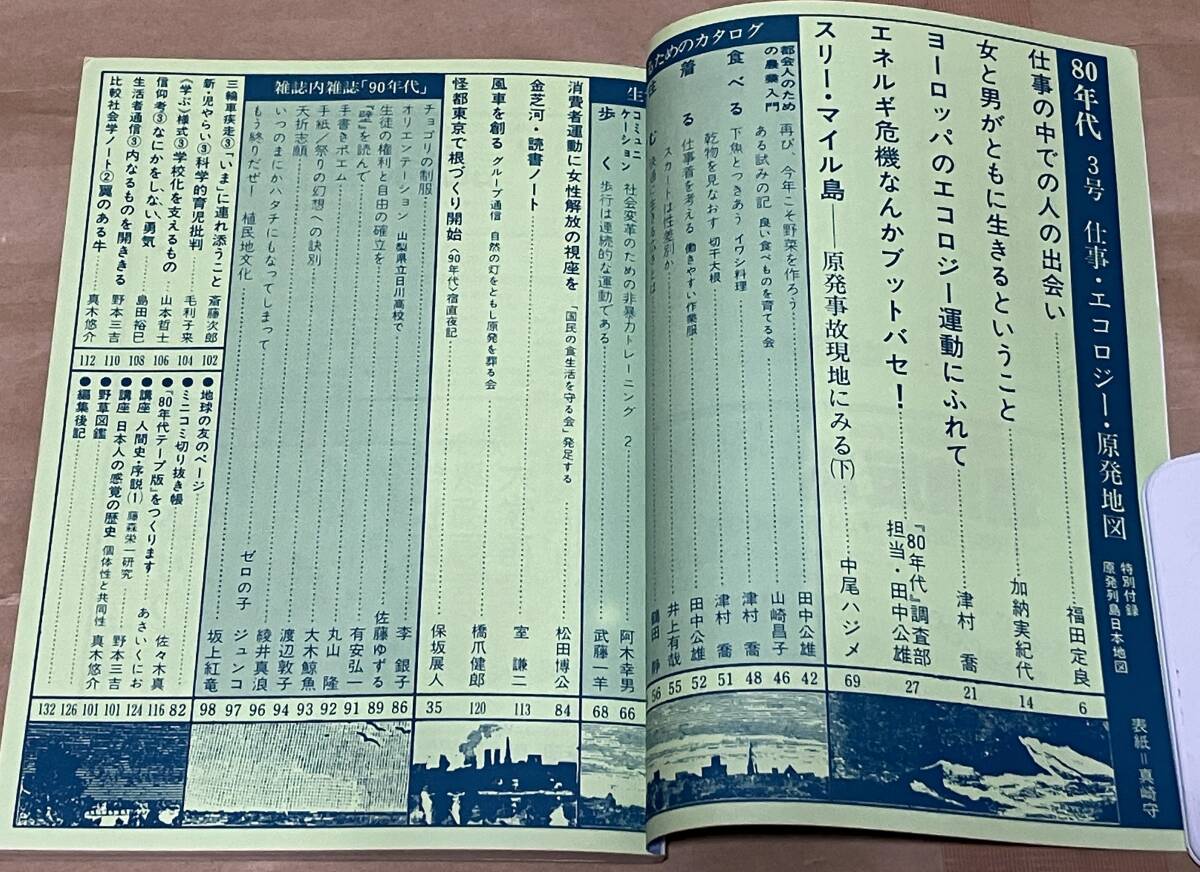 80年代 3号 仕事・エコロジー・原発地図
特別付録
原発列島日本地図
表紙=真崎守
仕事の中での人の出会い 福田定良 6
女と男がともに生きるということ 加納実紀代 14
ヨーロッパのエコロジー運動にふれて 津村 喬 21
エネルギ危機なんかブットバセ! 『80年代』調査部 担当・田中公雄 27
スリー・マイル島――原発事故現地にみる(下) 中尾ハジメ 69
ためのカタログ
都会人のための農業入門 再び、今年こそ野菜を作ろう 田中公雄 42
ある試みの記 良い食べものを育てる会 山崎昌子 46
食べる 下魚とつきあう イワシ料理 津村 喬 48
乾物を見なおす 切干大根 津村 喬 51
着る 仕事着を考える 働きやすい作業服 田中公雄 52
スカートは性差別か 井上有哉 55
鶴田 静 56
生
コミュニケーション 社会変革のための非暴力トレーニング 2 阿木幸男 66
歩く 歩行は連続的な運動である 武藤一羊 68
消費者運動に女性解放の視座を 「国民の食生活を守る会」発足する 松田博公 84
金芝河・読書ノート 室 謙二 113
風車を創る グループ通信 自然の灯をともし原発を葬る会 橋爪健郎 120
怪都東京で根づくり開始 〈90年代〉宿直夜記 保坂展人 35
雑誌内雑誌「90年代」
チョゴリの制服 李 銀子 86
オリエンテーション 山梨県立日川高校で
生徒の権利と自由の確立を 佐藤ゆずる 89
『壁』を読んで 有安弘一 91
手書きポエム 丸山 隆 92
手紙/祭りの幻想への訣別 大木鯨魚 93
夭折志願 渡辺敦子 94
いつのまにかハタチにもなってしまって 綾井真浪 96
ジュンコ 97
もう終りだぜー 植民地文化 ゼロの子 坂上紅竜 98
三輪車疾走③「いま」に連れ添うこと 斎藤次郎 102
新・児やらい③科学的育児批判 毛利子来 104
〈学ぶ〉様式③学校化を支えるもの 山本哲士 106
信仰考③なにかをしない勇気 島田裕巳 108
生活者通信③内なるものを開ききる 野本三吉 110
比較社会学ノート②翼のある牛 真木悠介 112
●地球の友のページ 82
●ミニコミ切り抜き帳 佐々木真 116
●『80年代テープ版』をつくります あさいくにお 124
●講座 人間史・序説(1) 藤森栄一研究 野本三吉 101
●講座 日本人の感覚の歴史 個体性と共同性 真木悠介 101
●野草図鑑 126
●編集後記 132